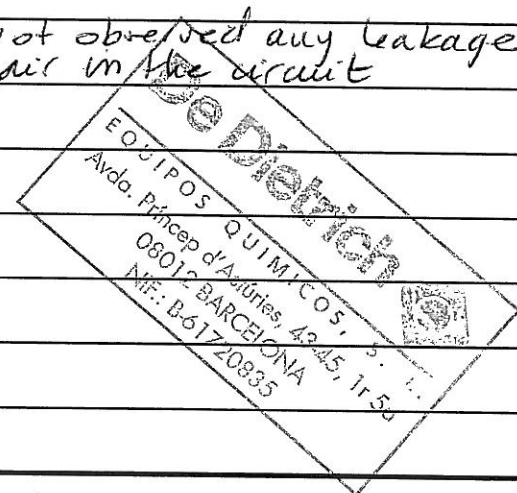 ot observed any leakage
air in the circuit
De Dietrich
EQUIPOS QUIMICOS, S. L.
Avda. Príncep d'Astúries, 43-45, 1r 5a
08012 BARCELONA
NIF.: B-61720835